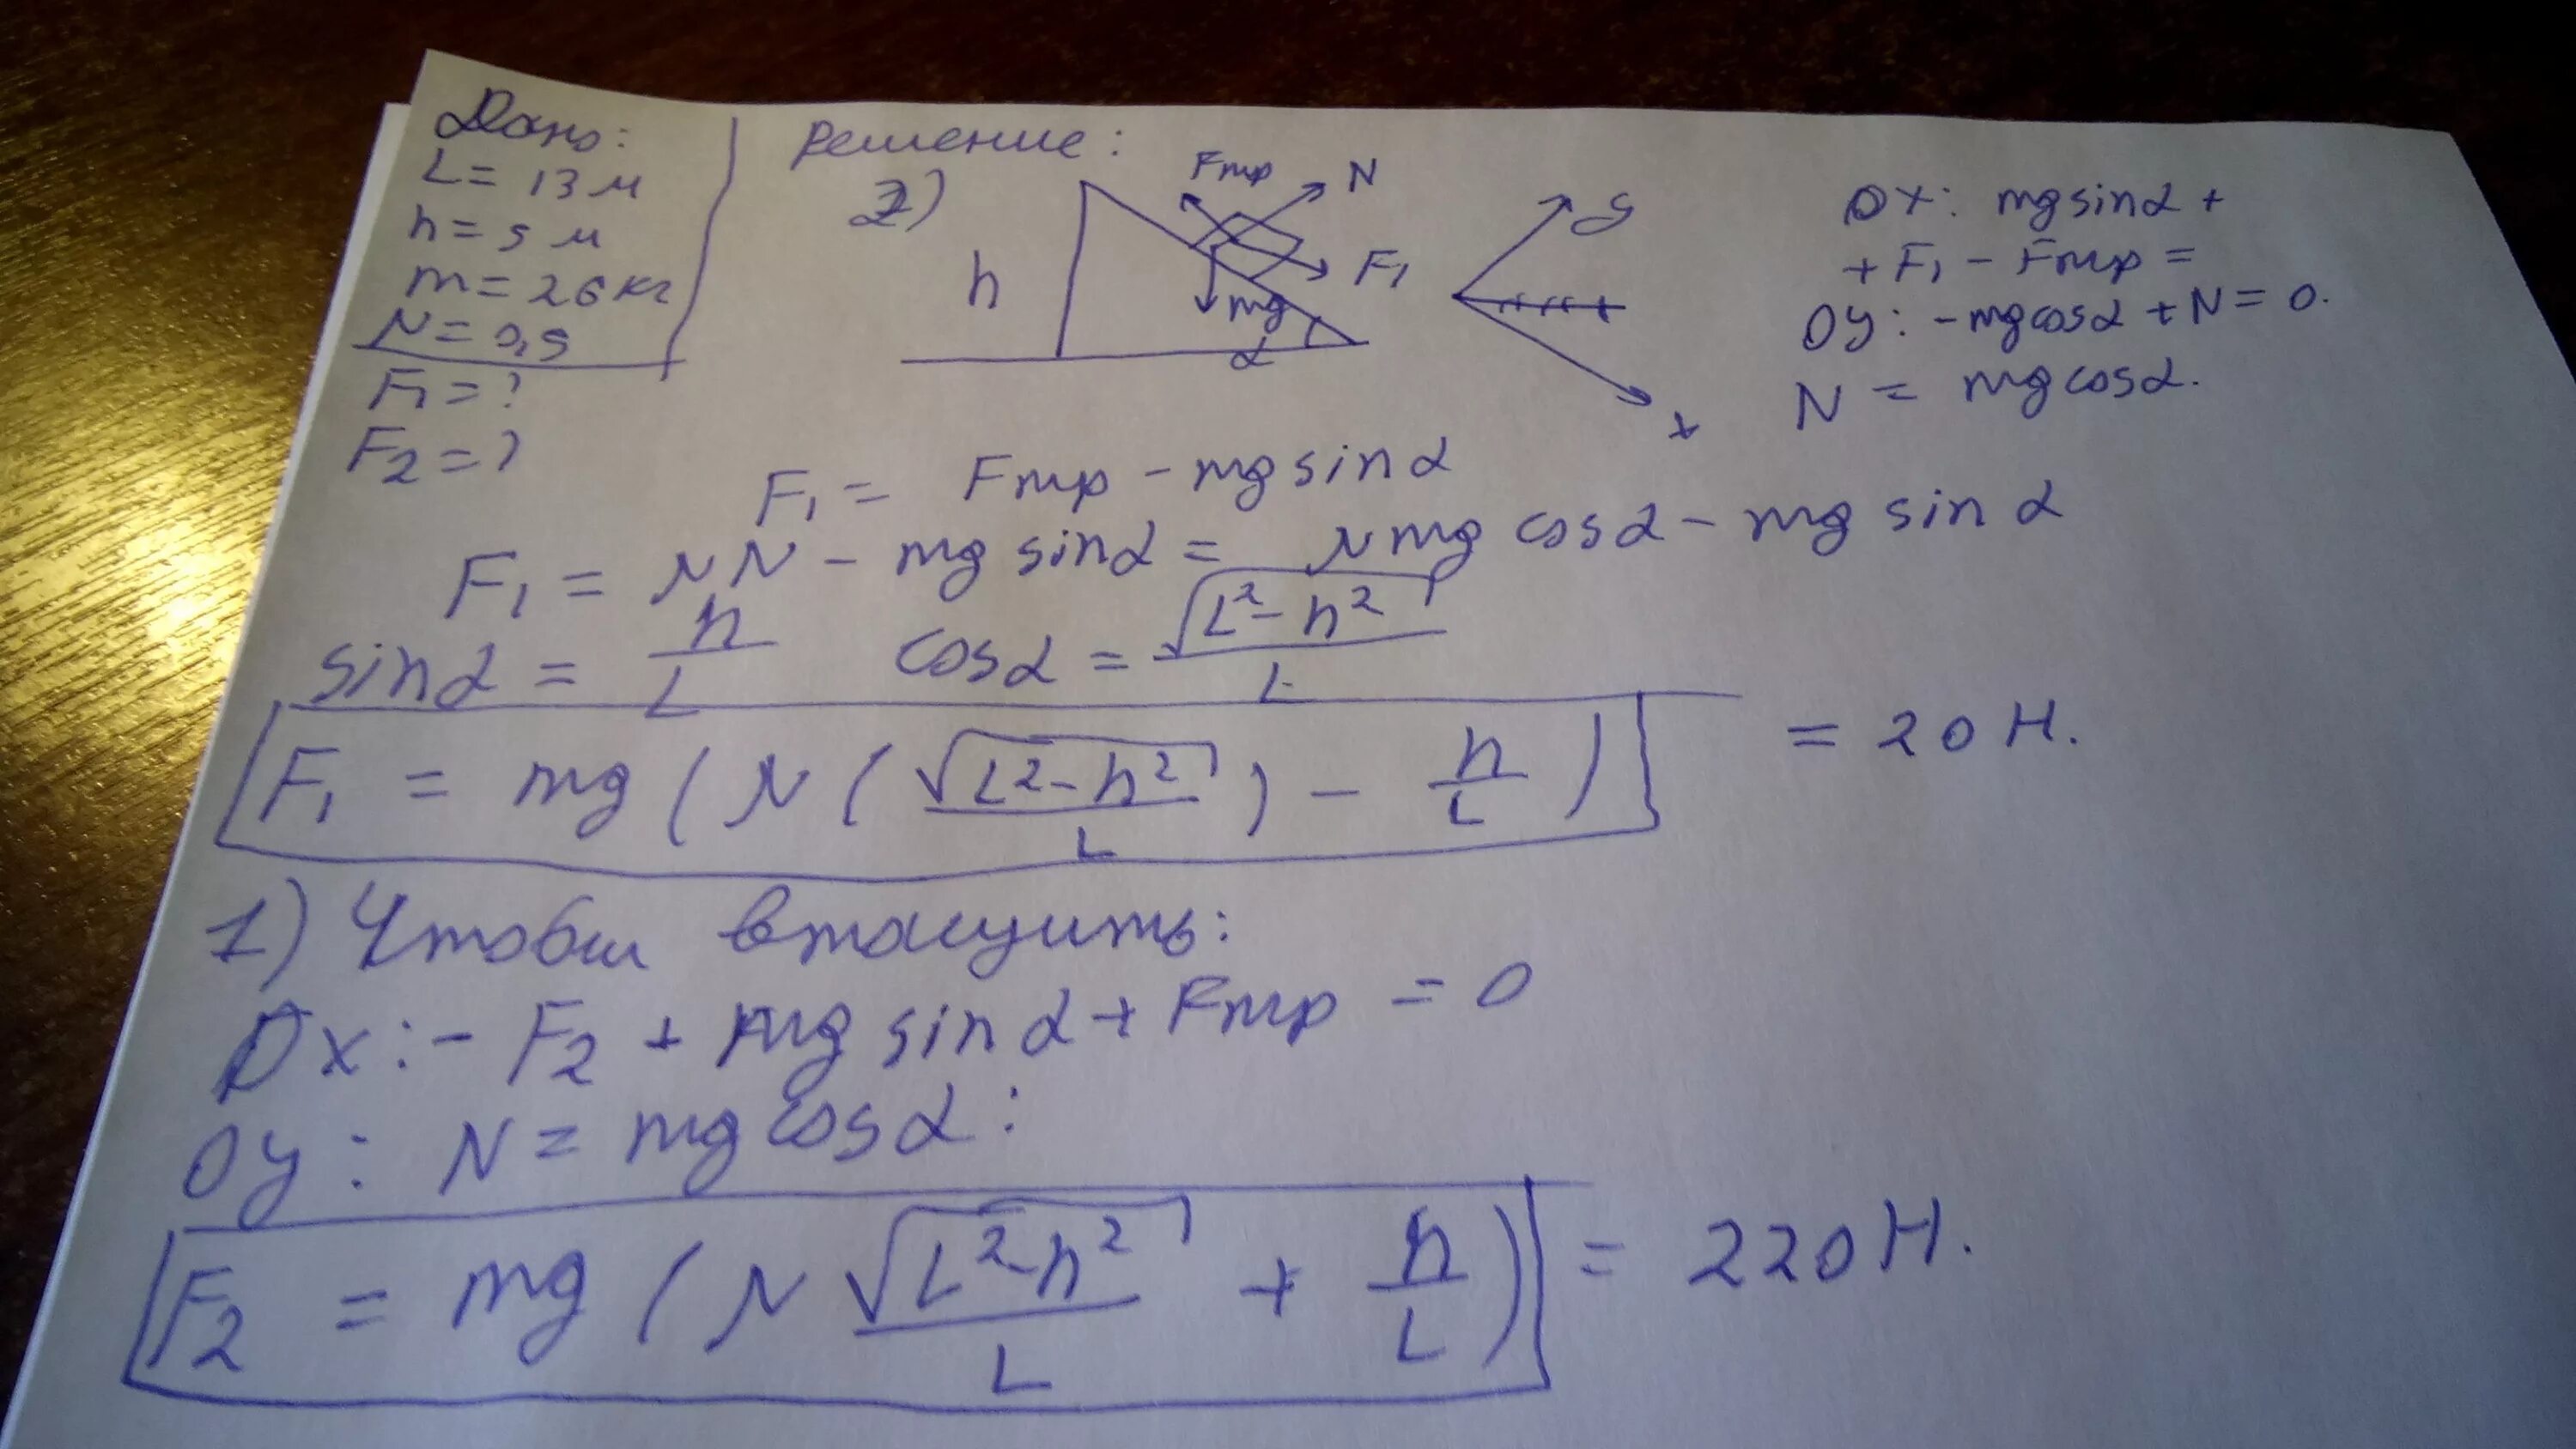 Дано:
L = 13 м
h = 5 м
m = 26 кг
μ = 0,5
F₁ = ?
F₂ = ?
Решение:
2)
Fтр
N
F₁
mg
h
α
y
x
Ox: mg sinα +
+ F₁ - Fтр =
Oy: -mg cosα + N = 0.
N = mg cosα.
F₁ = Fтр - mg sinα
F₁ = μN - mg sinα = μmg cosα - mg sinα
sinα = h/L cosα = √(L²-h²)/L
F₁ = mg(μ(√(L²-h²)/L) - h/L) = 20 Н.
1) Чтобы втащить:
Ox: - F₂ + mg sinα + Fтр = 0
Oy: N = mg cosα:
F₂ = mg(μ√(L²-h²)/L + h/L) = 220 Н.